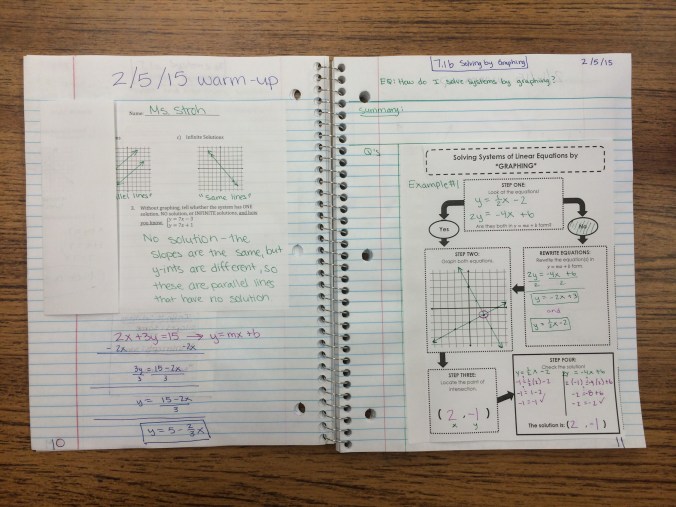 2/5/15 warm-up
Name Ms Stroh
c) Infinite Solutions
llel lines"
"same lines"
2. Without graphing, tell whether the system has ONE
solution, NO solution, or INFINITE solutions and how
you know.
y = 7x - 3
y = 7x + 1
No solution - the
slopes are the same, but
y-ints are different, so
these are parallel lines
that have no solution
2x + 3y = 15 → y = mx + b
- 2x -2x
3y = 15 - 2x
3 3
y = 15 - 2x
3
y = 5 - 2/3 x
10
7.1b Solving by Graphing
2/5/15
EQ: How do I solve systems by graphing?
Summary:
Q's
Solving Systems of Linear Equations by
*GRAPHING*
Example #1
STEP ONE:
Look at the equations!
y = 1/2 x - 2
2y = -4x + 6
Are they both in y = mx + b form?
Yes
No
STEP TWO:
Graph both equations.
REWRITE EQUATIONS:
Rewrite the equation(s) in
y = mx + b form.
2y = -4x + 6
2 2
y = -2x + 3
and
y = 1/2 x - 2
STEP THREE:
Locate the point of
intersection.
(2, -1)
x y
STEP FOUR:
Check the solution!
y = 1/2 x - 2
-1 = 1/2 (2) - 2
-1 = 1 - 2
-1 = -1 ✓
2y = -4x + 6
2(-1) = -4(2) + 6
-2 = -8 + 6
-2 = -2 ✓
The solution is: (2, -1)
11